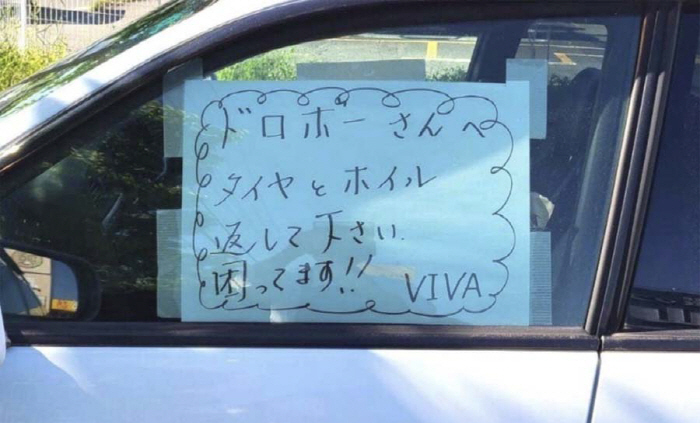 ドロボーさんへ
タイヤとホイル
返して下さい.
困ってます!! VIVA.